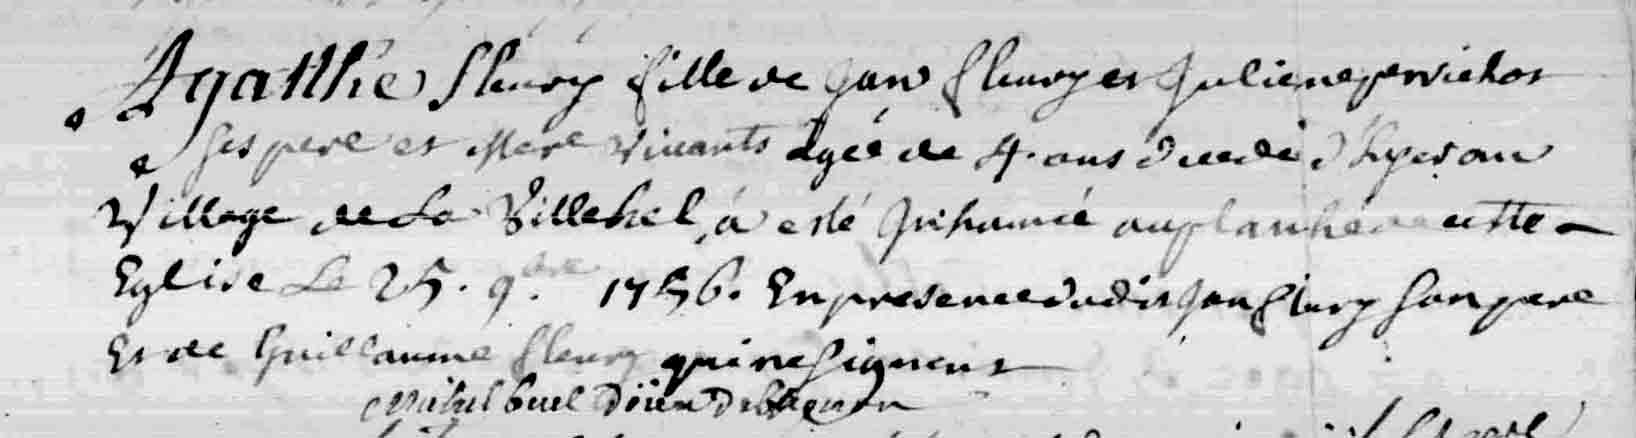 Agatthe fleury fille de Jan fleury et Juliene perrichot
ses pere et Mere vivants agée de 4. ans decedé d'hyer au
Village de La Villehel, à esté Inhumée au planché de cette
Eglise Le 25. 9bre. 1756. En presence dudit Jan fleury son pere
Et de Guillaume fleury qui ne signent
Michel buel